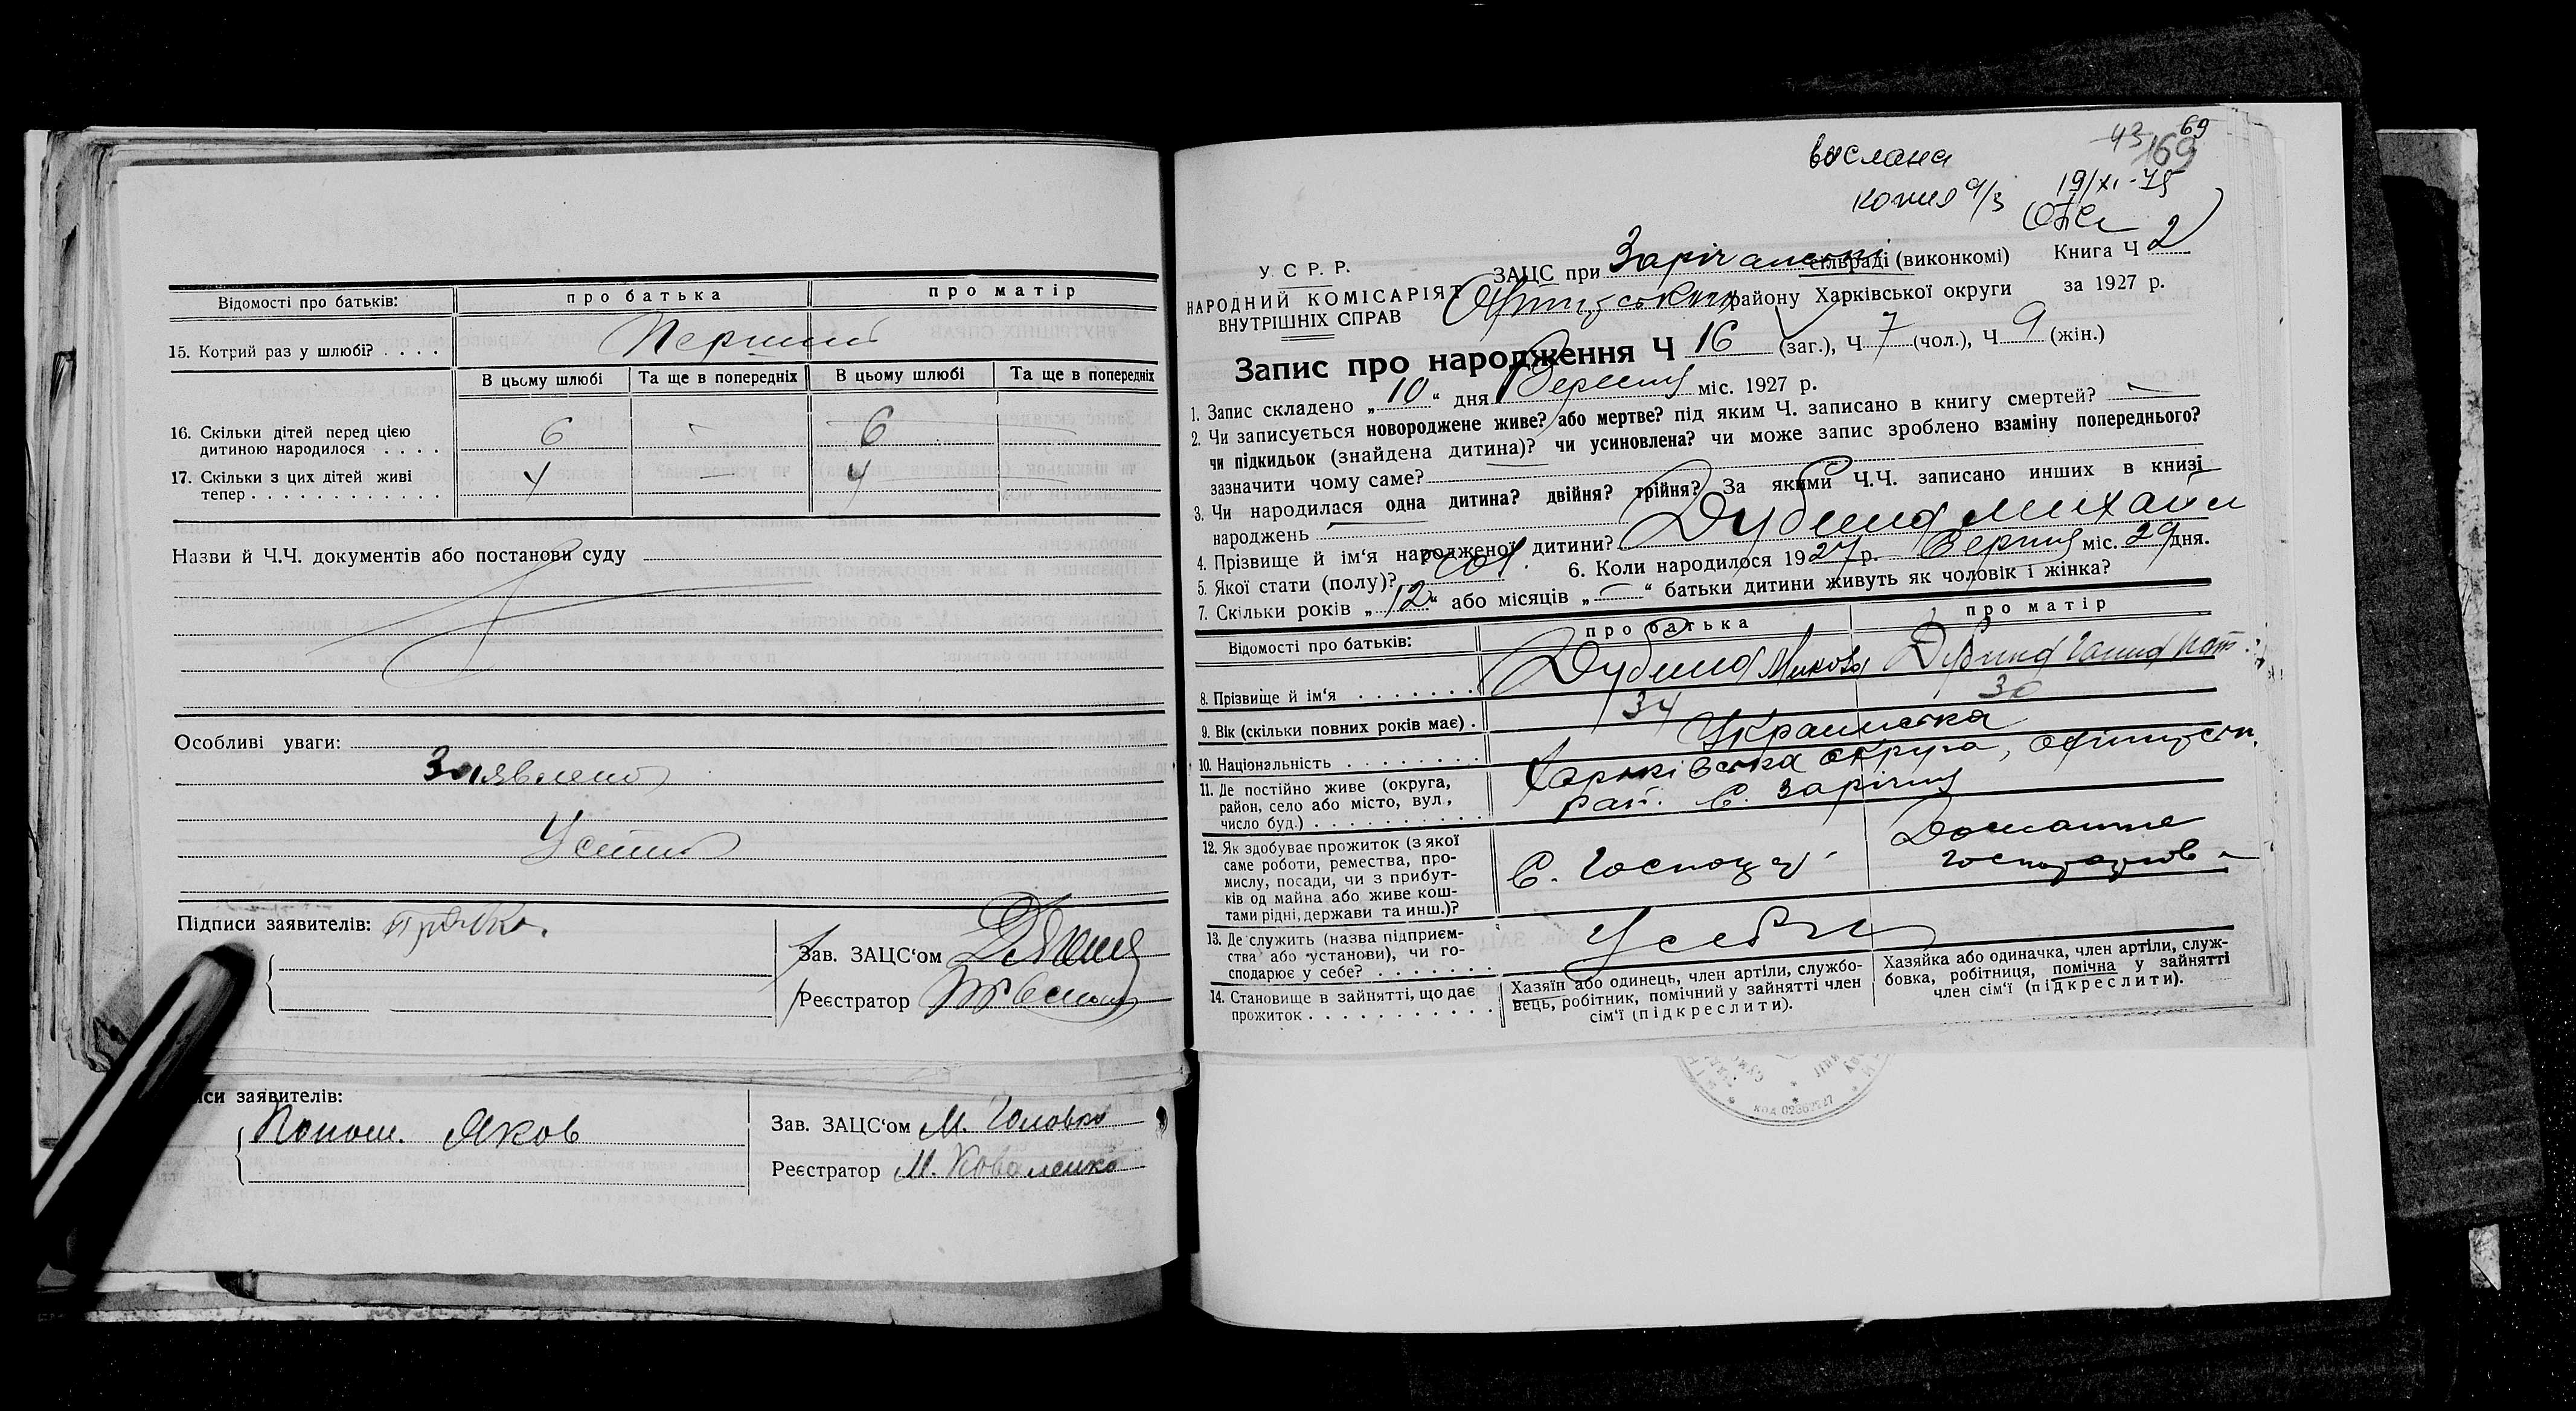 Відомості про батьків: про батька про матір
15. Котрий раз у шлюбі? . . . . Перший
В цьому шлюбі Та ще в попередніх В цьому шлюбі Та ще в попередніх
16. Скільки дітей перед цією
дитиною народилося . . . . 6 - 6 —
17. Скільки з цих дітей живі
тепер . . . . . . . . . . . . 4 — 4 —
Назви й Ч.Ч. документів або постанови суду
Особливі уваги:
Заявлено
Устно
Підписи заявителів:
Зав. ЗАЦС'ом
Реєстратор
заявителів:
Яков
Зав. ЗАЦС'ом М. Головко
Реєстратор М. Коваленко
вислана
копия 9/3
43 69
169
19/XI-75
У. С. Р. Р.
НАРОДНИЙ КОМІСАРІЯТ
ВНУТРІШНІХ СПРАВ
ЗАЦС при Зарічанські сільраді (виконкомі) Книга Ч 2
району Харківської округи за 1927 р.
Запис про народження Ч 16 (заг.), Ч 7 (чол.), Ч 9 (жін.)
1. Запис складено „10“ дня Вересня міс. 1927 р.
2. Чи записується новороджене живе? або мертве? під яким Ч. записано в книгу смертей? —
чи підкидьок (знайдена дитина)? чи усиновлена? чи може запис зроблено взаміну попереднього?
зазначити чому саме?
3. Чи народилася одна дитина? двійня? трійня? За якими Ч.Ч. записано инших в книзі
народжень
4. Прізвище й ім'я народженої дитини? Дубина Михайл
5. Якої стати (полу)? чол. 6. Коли народилося 1927 р. Серпня міс. 29 дня.
7. Скільки років „12“ або місяців „—“ батьки дитини живуть як чоловік і жінка?
Відомості про батьків: про батька про матір
8. Прізвище й ім'я . . . . . . . Дубина Микола Дубина Ганна
9. Вік (скільки повних років має) . 34 30
10. Національність . . . . . . . . Украинська
11. Де постійно живе (округа,
район, село або місто, вул.,
число буд.) . . . . . . . . . . Харьківська округа,
рай. С. Зарічня
12. Як здобуває прожиток (з якої
саме роботи, ремества, про-
мислу, посади, чи з прибут-
ків од майна або живе кош-
тами рідні, держави та инш.)?
С.
Домашне
13. Де служить (назва підприєм-
ства або установи), чи го-
сподарює у себе? . . . . . . . У себе
14. Становище в зайнятті, що дає
прожиток . . . . . . . . . . . .
Хазяїн або одинець, член артіли, службо-
вець, робітник, помічний у зайнятті член
сім'ї (підкреслити).
Хазяйка або одиначка, член артіли, служ-
бовка, робітниця, помічна у зайнятті
член сім'ї (підкреслити).